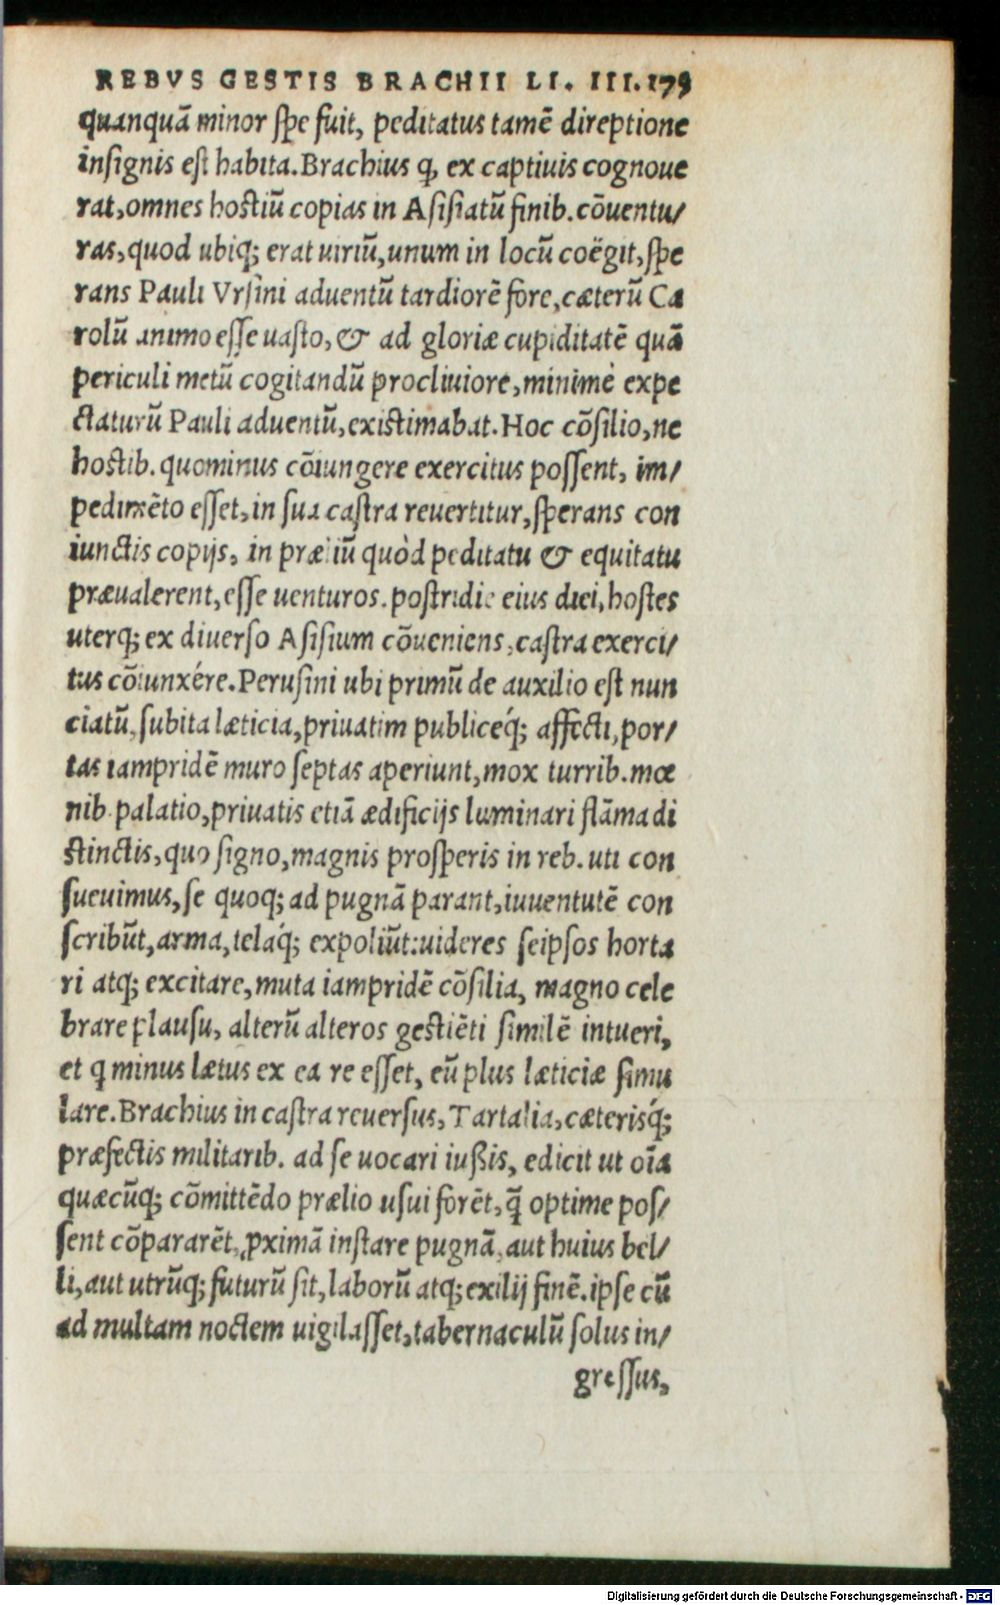 REBVS GESTIS BRACHII LI. III. 179
quanquā minor spe fuit, peditatus tamē direptione
insignis est habita. Brachius q, ex captiuis cognoue
rat, omnes hostiū copias in Asisiatū finib. cōuentu/
ras, quod ubiq; erat uiriū, unum in locū coëgit, spe
rans Pauli Vrsini aduentū tardiorē fore, cæterū Ca
rolū animo esse uasto, & ad gloriæ cupiditatē quā
periculi metū cogitandū procliuiore, minimè expe
ctaturū Pauli aduentū, existimabat. Hoc cōsilio, ne
hostib. quominus cōiungere exercitus possent, im/
pedimēto esset, in sua castra reuertitur, sperans con
iunctis copijs, in præliū quòd peditatu & equitatu
præualerent, esse uenturos. postridie eius diei, hostes
uterq; ex diuerso Asisium cōueniens, castra exerci/
tus cōiunxére. Perusini ubi primū de auxilio est nun
ciatū, subita læticia, priuatim publiceq́; affecti, por/
tas iampridē muro septas aperiunt, mox turrib. mœ
nib. palatio, priuatis etiā ædificijs luminari flāma di
stinctis, quo signo, magnis prosperis in reb. uti con
sueuimus, se quoq; ad pugnā parant, iuuentutē con
scribūt, arma, telaq́; expoliūt: uideres seipsos horta
ri atq; excitare, muta iampridē cōsilia, magno cele
brare plausu, alterū alteros gestiēti similē intueri,
et q minus lætus ex ea re esset, eū plus læticiæ simu
lare. Brachius in castra reuersus, Tartalia, cæterisq́;
præfectis militarib. ad se uocari iußis, edicit ut oīa
quæcūq; cōmittēdo prælio usui forēt, q̄ optime pos/
sent cōpararēt, ꝓximā instare pugnā, aut huius bel/
li, aut utrūq; futurū sit, laborū atq; exilij finē. ipse cū
ad multam noctem uigilasset, tabernaculū solus in/
gressus,
Digitalisierung gefördert durch die Deutsche Forschungsgemeinschaft - DFG